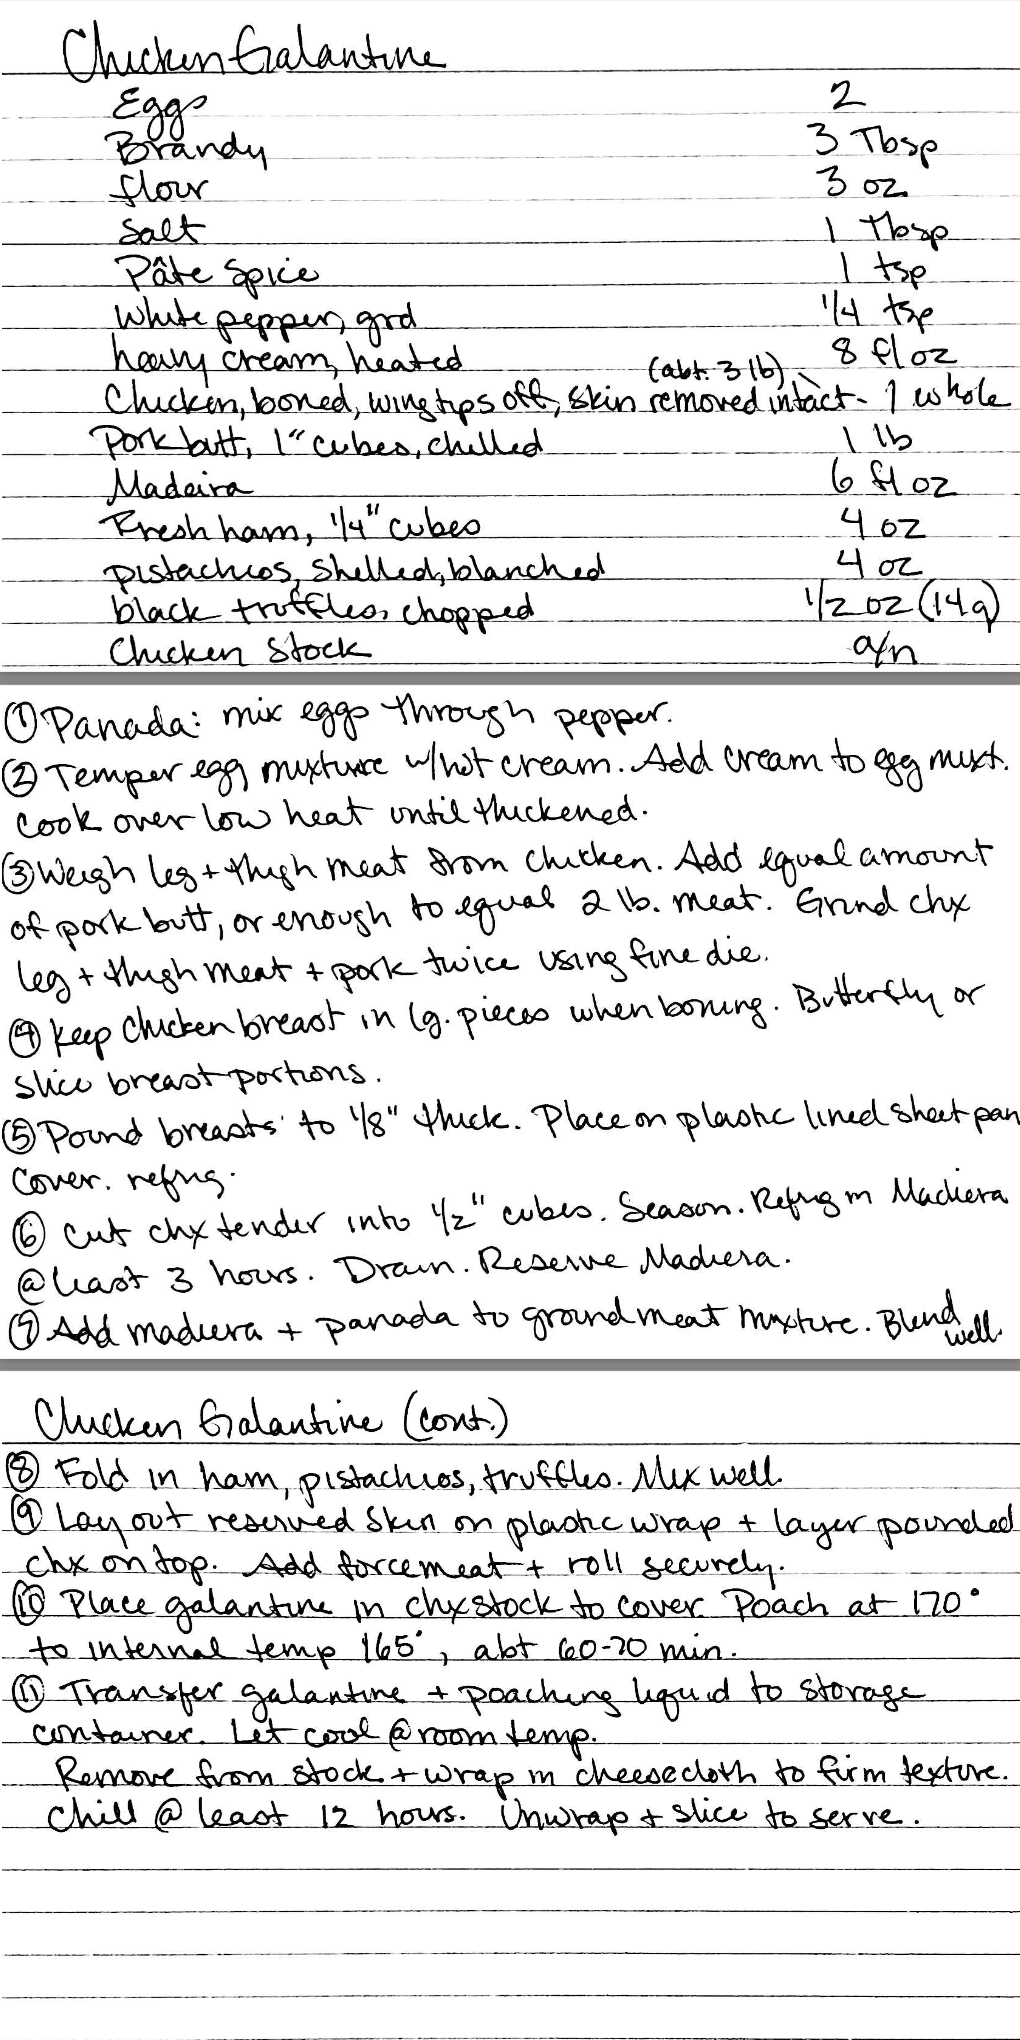 Chicken Galantine
Eggs 2
Brandy 3 Tbsp
flour 3 oz
Salt 1 Tbsp
Pâte Spice 1 tsp
White pepper, grd 1/4 tsp
heavy cream, heated 8 fl oz
(abt. 3 lb)
Chicken, boned, wing tips off, skin removed intact - 1 whole
Pork butt, 1" cubes, chilled 1 lb
Madeira 6 fl oz
Fresh ham, 1/4" cubes 4 oz
pistachios, shelled, blanched 4 oz
black truffles, chopped 1/2 oz (14g)
Chicken Stock a/n
① Panada: mix eggs through pepper.
② Temper egg mixture w/hot cream. Add cream to egg mixt.
cook over low heat until thickened.
③ Weigh leg + thigh meat from chicken. Add equal amount
of pork butt, or enough to equal 2 lb. meat. Grind chx
leg + thigh meat + pork twice using fine die.
④ Keep chicken breast in lg. pieces when boning. Butterfly or
slice breast portions.
⑤ Pound breasts to 1/8" thick. Place on plastic lined sheet pan
cover. refrig.
⑥ Cut chx tender into 1/2" cubes. Season. Refrig in Madiera
@ least 3 hours. Drain. Reserve Madiera.
⑦ Add madiera + panada to ground meat mixture. Blend
well.
Chicken Galantine (cont.)
⑧ Fold in ham, pistachios, truffles. Mix well.
⑨ Lay out reserved skin on plastic wrap + layer pounded
chx on top. Add forcemeat + roll securely.
⑩ Place galantine in chx stock to cover. Poach at 170°
to internal temp 165°, abt 60-70 min.
⑪ Transfer galantine + poaching liquid to storage
container. Let cool @ room temp.
Remove from stock + wrap in cheesecloth to firm texture.
Chill @ least 12 hours. Unwrap + slice to serve.